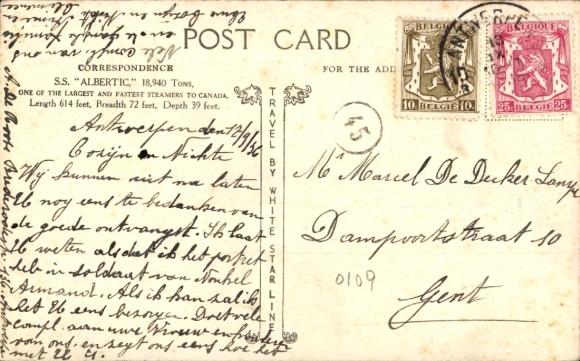 POST CARD
CORRESPONDENCE
FOR THE ADD
S.S. "ALBERTIC," 18,940 TONS,
ONE OF THE LARGEST AND FASTEST STEAMERS TO CANADA.
Length 614 feet, Breadth 72 feet, Depth 39 feet.
TRAVEL BY WHITE STAR LINE
Antwerpen den 12/9/36
Cozijn en Nichte
Wij kunnen niet na laten
U nog eens te bedanken van
de goede ontvangst. Ik laat
U weten als dat ik het portret
heb in soldaat van Nonkel
Armand. Als ik kan zal ik
het U eens bezorgen. Doet vele
compl aan uwe Vrouw en
van ons en zegt ons eens hoe het
met U is.
Vele compl. van ons
en de gansche familie
Uwe Cozijn en Nicht
A. De Roose
45
Mr Marcel De Decker
Dampoortstraat 10
Gent
0109
BELGIQUE
10 BELGIE 10
BELGIQUE
25 BELGIE 25
ANTWERPE